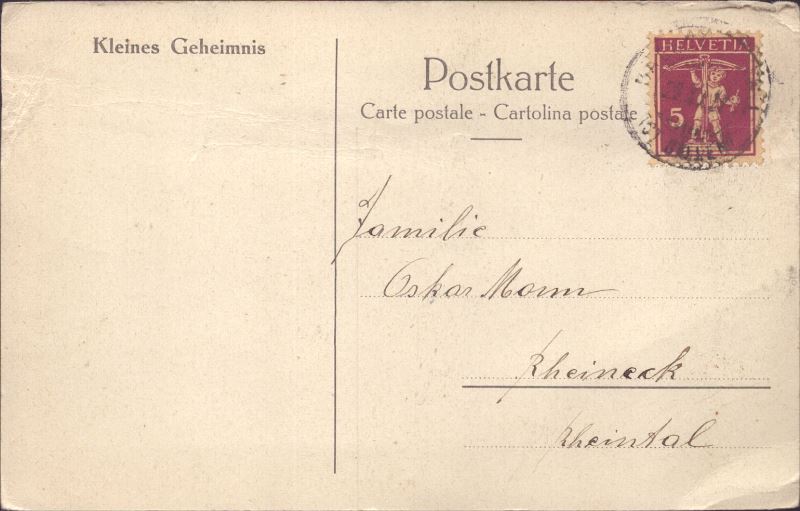 Kleines Geheimnis
Postkarte
Carte postale - Cartolina postale
HELVETIA
5
Familie
Oskar Mann
Rheineck
Rheintal